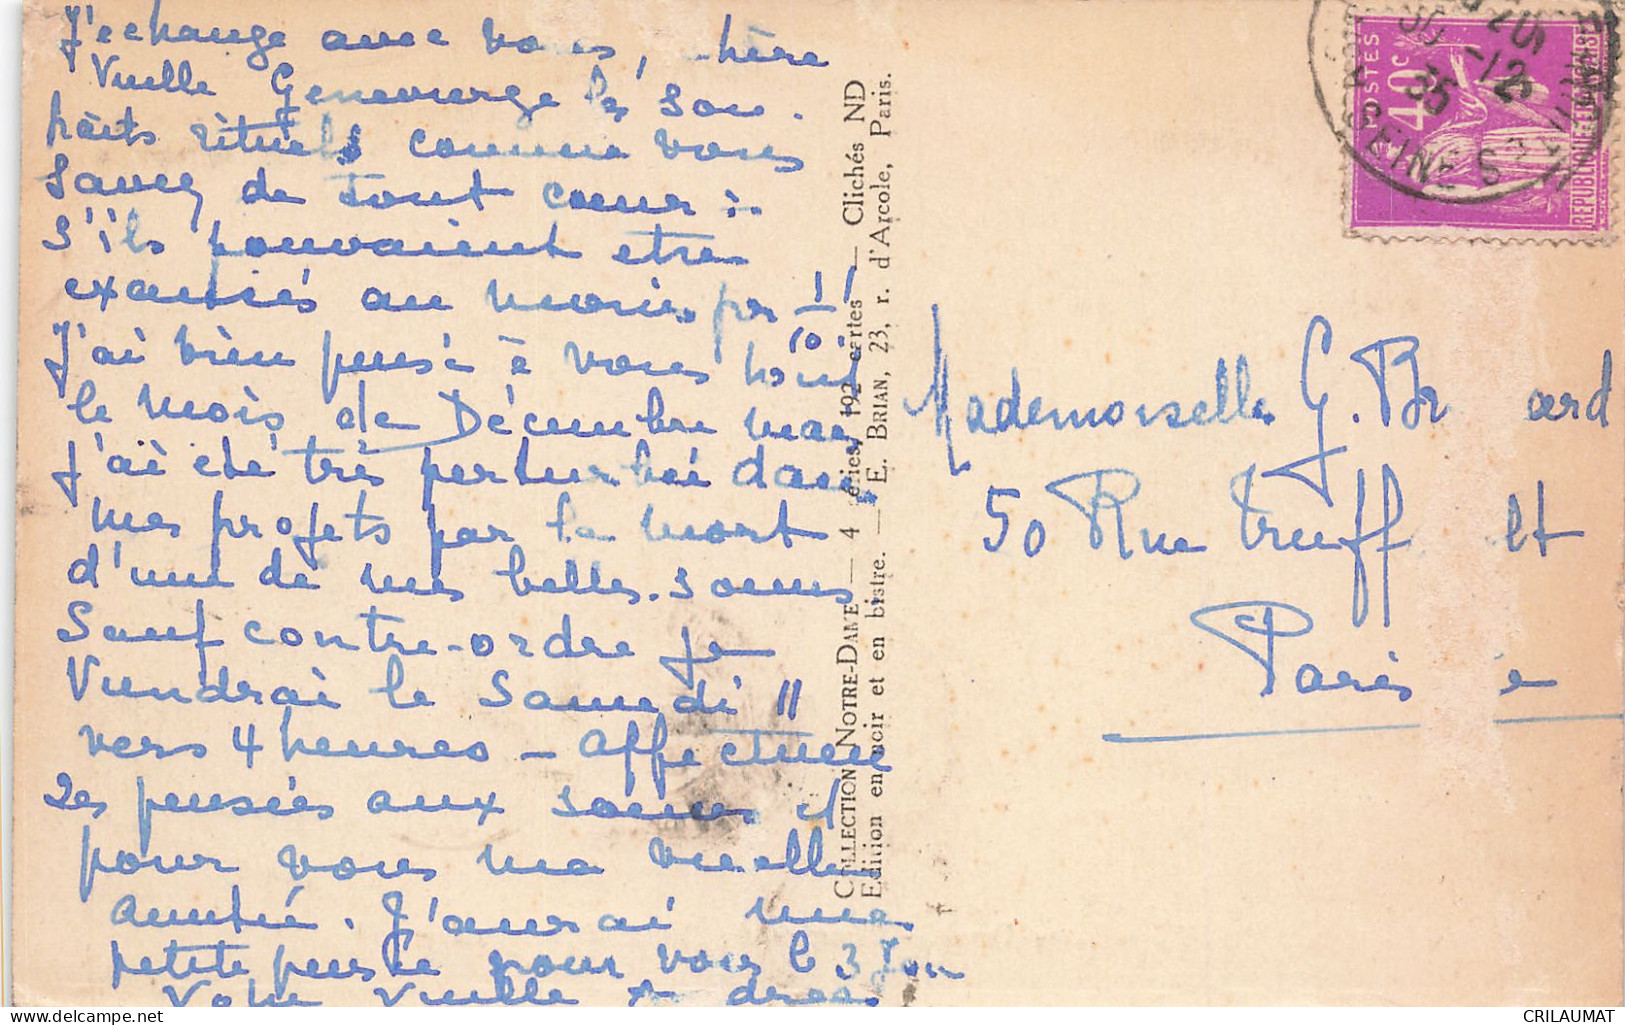 J'echange avec vous, chère
Vieille Genevierge les sou.
haits rituels comme vous
Savez de tout coeur :.
S'ils pouvaient etre
exaucés au moins pr 1/10!
J'ai bien pensé à vous tout
le mois de Décembre mais
j'ai été très perturbée dans
mes projets par la mort
d'une de mes belles-soeurs
Sauf contre-ordre je
Viendrai le Samedi 11
vers 4 heures - affectueu
ses pensées aux soeurs et
pour vous ma vieille
amitié. J'aurai une
petite pensée pour vous le 3 Jan
Votre Vieille
COLLECTION NOTRE-DAME — 4 séries, 192 cartes — Clichés ND
Edition en noir et en bistre. — E. BRIAN, 23, r. d'Arcole, Paris.
POSTES
40c
REPUBLIQUE FRANÇAISE
-12
35
SEINE
Mademoiselle G. Br ard
50 Rue Truff lt
Paris e
CRILAUMAT